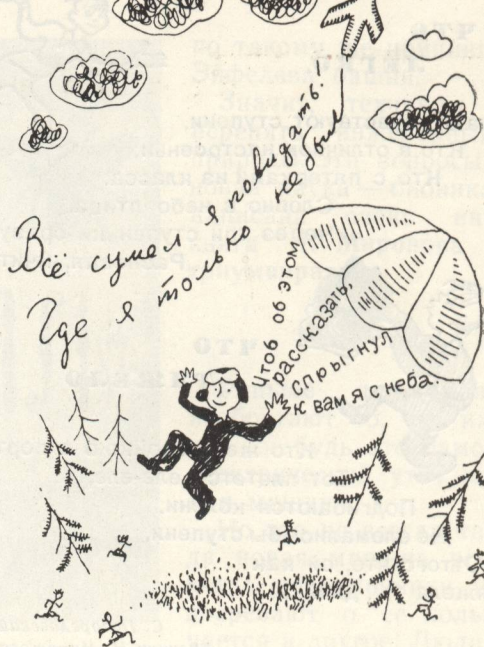 Всё сумел я повидать.
Где я только не был
Чтоб об этом
рассказать,
Спрыгнул
к вам я с неба.